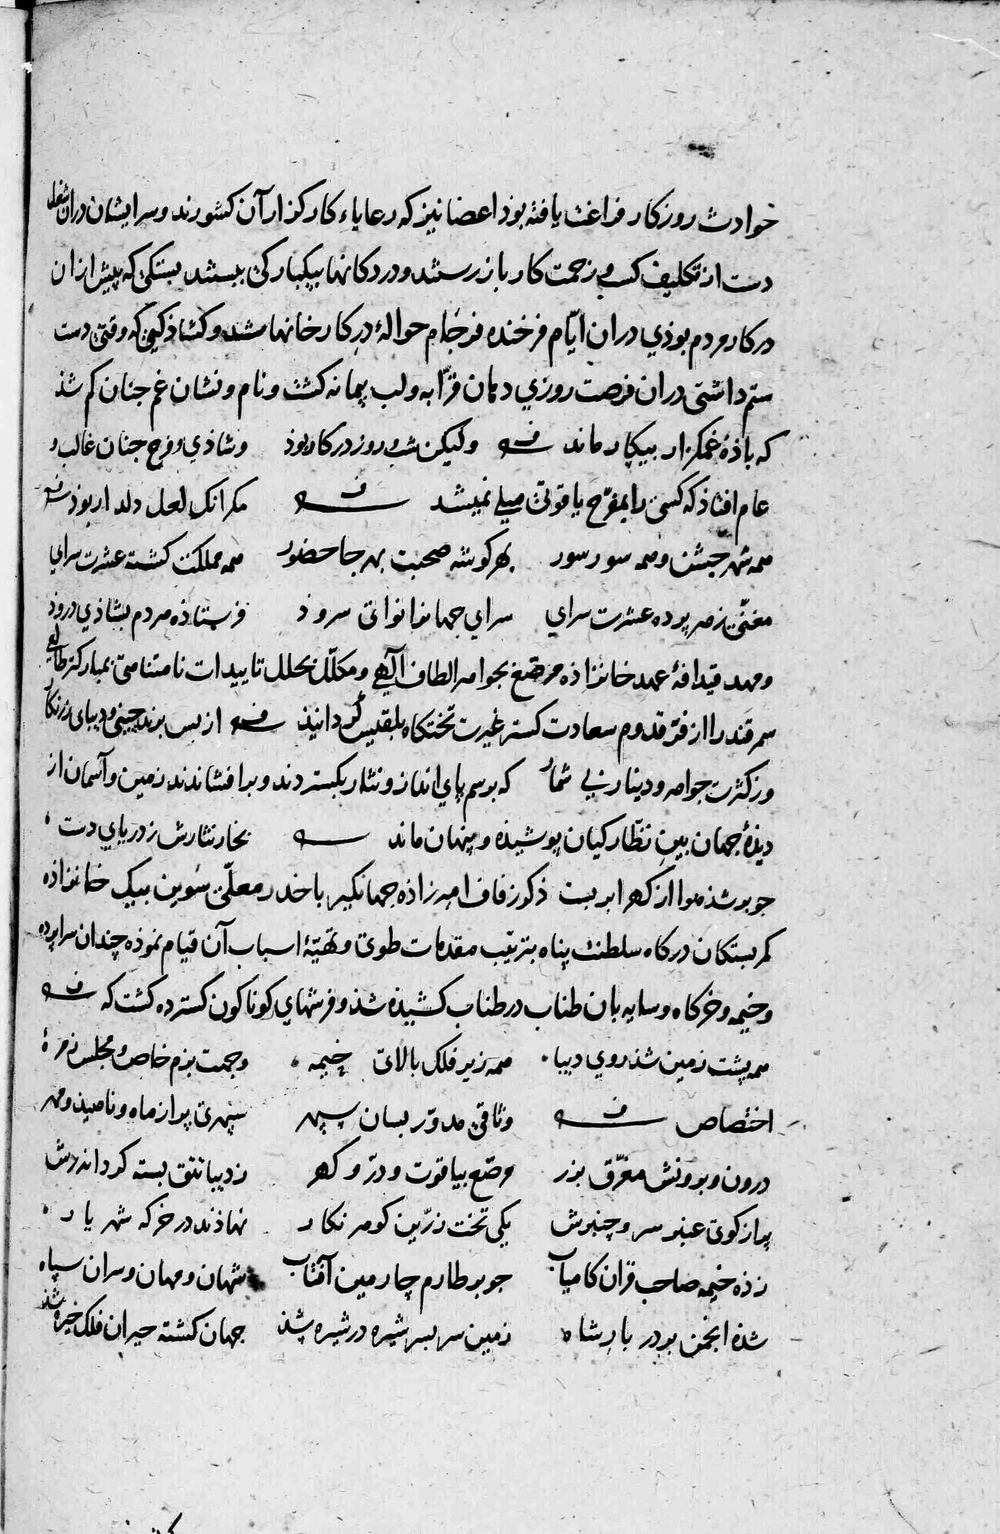 حوادث روزکار فراغت یافته بوذ اعضا نیز که رعایاء کارکزار آن کشورند و سرایشان دران شغل
دست از تکلیف کسب و زحمت کار باز رستند و در دکانها بیکبارکی ببستند بستکی که پیش ازان
در کار مردم بوذی دران ایّام فرخنده فرجام حوالهٔ در کارخانها شد و کشاذکیی که وقتی دست
ستم داشتی دران فرصت روزی دهان قرّابه و لب پیمانه کشت و نام و نشان غم جنان کم شذ
که باذهٔ غمکزار بیکار ماند ولیکن شب و روز در کار بوذ و شاذی و فرح جنان غالب و
عام افتاذ که کس را بمفرّح یاقوتی میلی نمیشد مکر انک لعل دلدار بوذ
همه شهر جشن و همه سور سور بهر کوشه صحبت بهر جا حضور همه مملکت کشته عشرت سرای
مغنّی زهر پرده عشرت سرای سرای جهانرا نوای سروذ فرستاذه مردم بشاذی دروذ
و مهد قیدافهٔ عهد خانزاذه مرصّع بجواهر الطاف الهی و مکلّل بحلل تاییدات نامتناهی بمبارکتر طالعی
سمرقند را از فرّ قدوم سعادت کستر غیرت تختکاه بلقیس کردانیذ از بس پرند چینی و دیبای زرنکار
وز کثرت جواهر و دینار بی شمار که برسم پای انداز و نثار بکستردند و برافشاندند زمین و آسمان از
دیذهٔ جهان بین نظّارکیان پوشیذه و پنهان ماند بخار نثارش ز دریای دست
جو بر شذ هوا از کهر ابر بست ذکر زفاف امیرزاذه جهانکیر با خدر معلّی سوین بیک خانزاذه
کمر بستکان درکاه سلطنت پناه بترتیب مقدمات طوی و تهیّهٔ اسباب آن قیام نموذه چندان سراپرده
و خیمه و خرکاه و سایه بان طناب در طناب کشیذه شذ و فرشهای کوناکون کسترده کشت که
همه پشت زمین شذ روی دیبا همه زیر فلک بالای خیمه و جهت بزم خاص و مجلس زمرهٔ
اختصاص وثاقی مدوّر بسان سپهر سپهری پر از ماه و ناهیذ و مهر
درون و برونش مغرّق بزر مرصّع بیاقوت و درّ و کهر ز دیبا تتق بسته کرد اندرش
پر از کوی عنبر سر و چنبرش یکی تخت زرّین کوهر نکار نهاذند در خرکه شهریار
زذه خیمه صاحب قران کامیاب جو بر طارم چارمین آفتاب شهان و مهان و سران سپاه
شذه انجمن بر در بارشاه زمین سر بسر شیره در شیره شذ جهان کشته حیران فلک خیره شذ